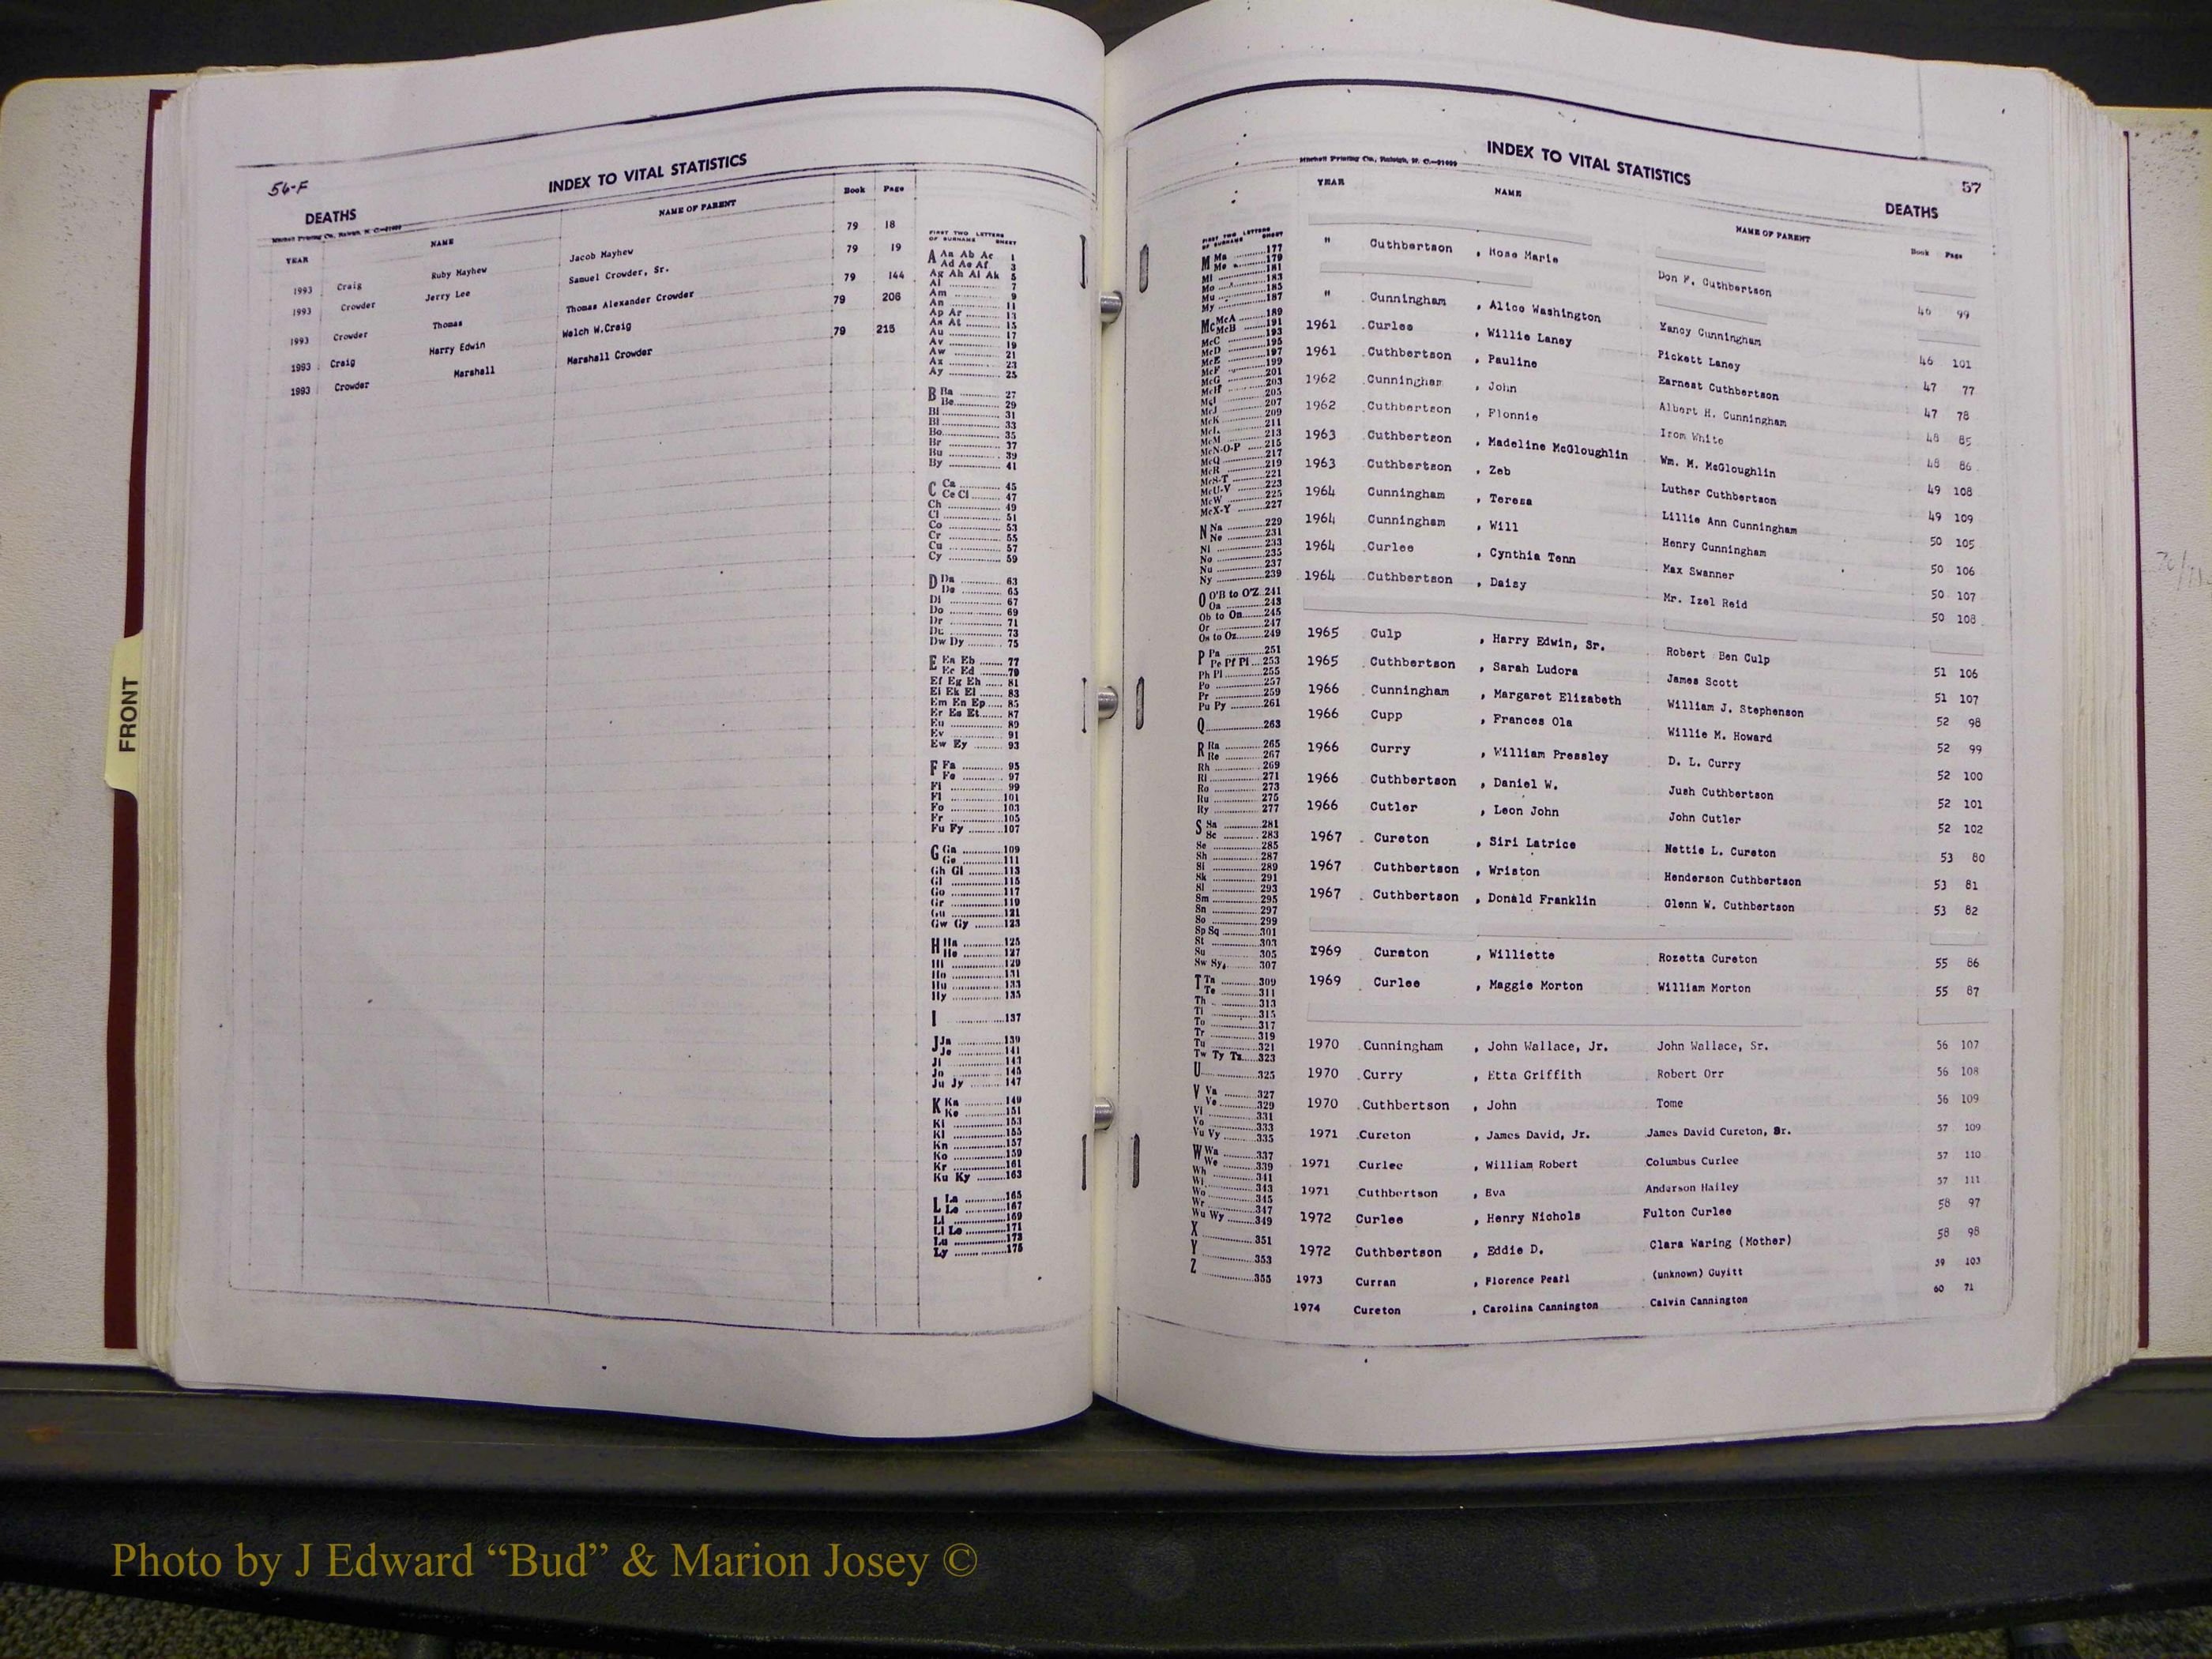 56-F
INDEX TO VITAL STATISTICS
DEATHS
Mitchell Printing Co., Raleigh, N. C.
YEAR NAME NAME OF PARENT Book Page
1993 Craig Ruby Mayhew Jacob Mayhew 79 18
1993 Crowder Jerry Lee Samuel Crowder, Sr. 79 19
1993 Crowder Thomas Thomas Alexander Crowder 79 144
1993 Craig Harry Edwin Welch W.Craig 79 206
1993 Crowder Marshall Marshall Crowder 79 215
FIRST TWO LETTERS
OF SURNAME SHEET
A Aa Ab Ac 1
Ad Ae Af 3
Ag Ah Ai Ak 5
Al 7
Am 9
An 11
Ap Ar 13
As At 15
Au 17
Av 19
Aw 21
Ax 23
Ay 25
B Ba 27
Be 29
Bi 31
Bl 33
Bo 35
Br 37
Bu 39
By 41
C Ca 45
Ce Ci 47
Ch 49
Cl 51
Co 53
Cr 55
Cu 57
Cy 59
D Da 63
De 65
Di 67
Do 69
Dr 71
Du 73
Dw Dy 75
E Ea Eb 77
Ec Ed 79
Ef Eg Eh 81
Ei Ek El 83
Em En Ep 85
Er Es Et 87
Eu 89
Ev 91
Ew Ey 93
F Fa 95
Fe 97
Fi 99
Fl 101
Fo 103
Fr 105
Fu Fy 107
G Ga 109
Ge 111
Gh Gi 113
Gl 115
Go 117
Gr 119
Gu 121
Gw Gy 123
H Ha 125
He 127
Hi 129
Ho 131
Hu 133
Hy 135
I 137
J Ja 139
Je 141
Ji 143
Jo 145
Ju Jy 147
K Ka 149
Ke 151
Ki 153
Kl 155
Kn 157
Ko 159
Kr 161
Ku Ky 163
L La 165
Le 167
Li 169
Ll Lo 171
Lu 173
Ly 175
INDEX TO VITAL STATISTICS
57
Mitchell Printing Co., Raleigh, N. C.
DEATHS
YEAR NAME NAME OF PARENT Book Page
" Cuthbertson , Rose Marie Don F. Cuthbertson 46 99
" Cunningham , Alice Washington Yancy Cunningham 46 101
1961 Curlee , Willie Laney Pickett Laney 47 77
1961 Cuthbertson , Pauline Earnest Cuthbertson 47 78
1962 Cunningham , John Albert H. Cunningham 48 85
1962 Cuthbertson , Flonnie Irom White 48 86
1963 Cuthbertson , Madeline McGloughlin Wm. M. McGloughlin 49 108
1963 Cuthbertson , Zeb Luther Cuthbertson 49 109
1964 Cunningham , Teresa Lillie Ann Cunningham 50 105
1964 Cunningham , Will Henry Cunningham 50 106
1964 Curlee , Cynthia Tenn Max Swanner 50 107
1964 Cuthbertson , Daisy Mr. Izel Reid 50 108
1965 Culp , Harry Edwin, Sr. Robert Ben Culp 51 106
1965 Cuthbertson , Sarah Ludora James Scott 51 107
1966 Cunningham , Margaret Elizabeth William J. Stephenson 52 98
1966 Cupp , Frances Ola Willie M. Howard 52 99
1966 Curry , William Pressley D. L. Curry 52 100
1966 Cuthbertson , Daniel W. Jush Cuthbertson 52 101
1966 Cutler , Leon John John Cutler 52 102
1967 Cureton , Siri Latrice Nettie L. Cureton 53 80
1967 Cuthbertson , Wriston Henderson Cuthbertson 53 81
1967 Cuthbertson , Donald Franklin Glenn W. Cuthbertson 53 82
1969 Cureton , Williette Rozetta Cureton 55 86
1969 Curlee , Maggie Morton William Morton 55 87
1970 Cunningham , John Wallace, Jr. John Wallace, Sr. 56 107
1970 Curry , Etta Griffith Robert Orr 56 108
1970 Cuthbertson , John Tome 56 109
1971 Cureton , James David, Jr. James David Cureton, Sr. 57 109
1971 Curlee , William Robert Columbus Curlee 57 110
1971 Cuthbertson , Eva Anderson Hailey 57 111
1972 Curlee , Henry Nichols Fulton Curlee 58 97
1972 Cuthbertson , Eddie D. Clara Waring (Mother) 58 98
1973 Curran , Florence Pearl (unknown) Guyitt 59 103
1974 Cureton , Carolina Cannington Calvin Cannington 60 71
FIRST TWO LETTERS
OF SURNAME SHEET
M Ma 177
Me 179
Mi 181
Mo 183
Mu 185
My 187
Mc McA 189
McB 191
McC 193
McD 195
McE 197
McF 199
McG 201
McH 203
McI 205
McJ 207
McK 209
McL 211
McM 213
McN-O-P 215
McQ 217
McR 219
McS-T 221
McU-V 223
McW 225
McX-Y 227
N Na 229
Ne 231
Ni 233
No 235
Nu 237
Ny 239
O O'B to O'Z 241
Oa 243
Ob to On 245
Or 247
Os to Oz 249
P Pa 251
Pe Pf Pi 253
Ph Pl 255
Po 257
Pr 259
Pu Py 261
Q 263
R Ra 265
Re 267
Rh 269
Ri 271
Ro 273
Ru 275
Ry 277
S Sa 281
Sc 283
Se 285
Sh 287
Si 289
Sk 291
Sl 293
Sm 295
Sn 297
So 299
Sp Sq 301
St 303
Su 305
Sw Sy 307
T Ta 309
Te 311
Th 313
Ti 315
To 317
Tr 319
Tu 321
Tw Ty Tz 323
U 325
V Va 327
Ve 329
Vi 331
Vo 333
Vu Vy 335
W Wa 337
We 339
Wh 341
Wi 343
Wo 345
Wr 347
Wu Wy 349
X 351
Y 353
Z 355
FRONT
Photo by J Edward “Bud” & Marion Josey ©